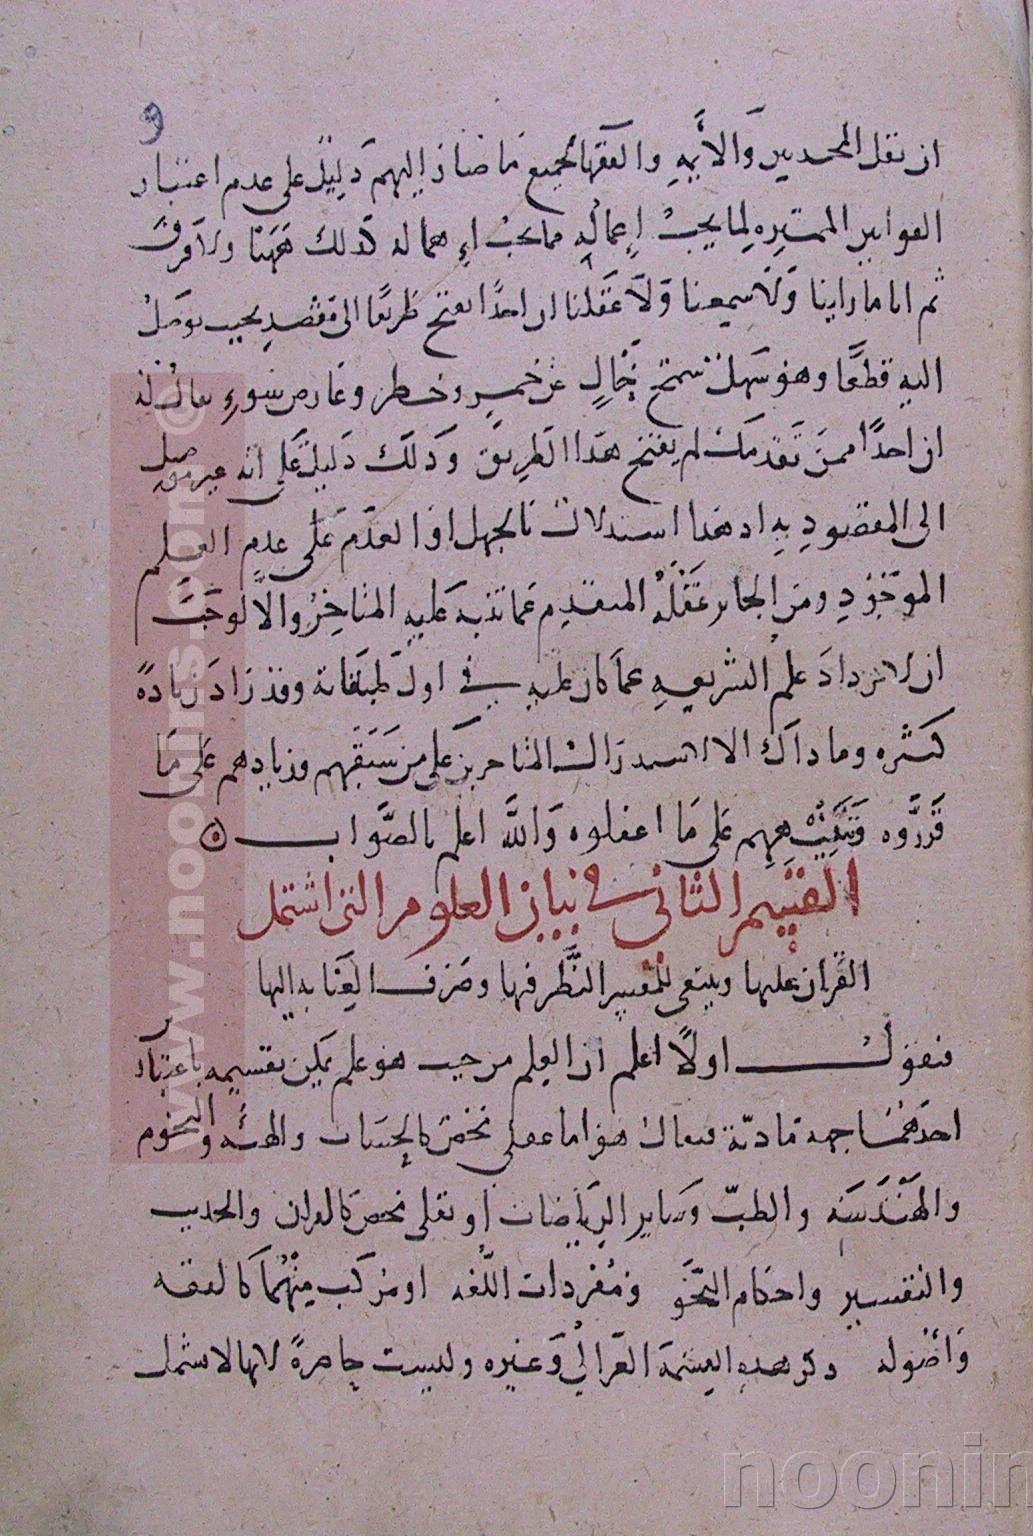 ٩
ان نقل المحدثين والأئمة والفقهاء لجميع ما صار اليهم دليل على عدم اعتبار
القوانين المميزه لما يجب إعماله مما يجب اهماله كذلك ههنا ولا فرق
ثم انا ما راينا ولا سمعنا ولا عقلنا ان احدًا يفتح طريقًا الى مقصد بحيث يوصل
اليه قطعًا وهو سهل سمح خالٍ عن وخطر وعارض سوء
ان احدًا ممن تقدمك لم يفتح هذا الطريق وذلك دليل على انه غير موصل
الى المقصود به اذ هذا استدلال بالجهل او العدم على عدم العلم
الموجود ومن الجائز غفلة المتقدم عما تنبه عليه المتاخر والا لوجب
ان لا يزداد علم الشريعه عما كان عليه في اول طبقاته وقد زاد زيادة
كثيره وما ذاك الا لاستدراك المتاخرين على من سبقهم وزيادتهم على ما
قرروه وتنبيههم على ما اغفلوه والله اعلم بالصواب ه
القسم الثاني في بيان العلوم التي اشتمل
القران عليها وينبغي للمفسر النظر فيها وصرف العناية اليها
فنقول اولًا اعلم ان العلم من حيث هو علم يمكن تقسيمه باعتبار
احدهما جهة مادته فيقال هو اما عقلي محض كالحساب والهيئه والنجوم
والهندسه والطب وساير الرياضات او نقلي محض كالقران والحديث
والتفسير واحكام النحو ومفردات اللغه او مركب منهما كالفقه
وأصوله ذكر هذه القسمة الغزالي وغيره وليست حاصرةً لانها لا تشمل
www.noonins.com ©
noonin